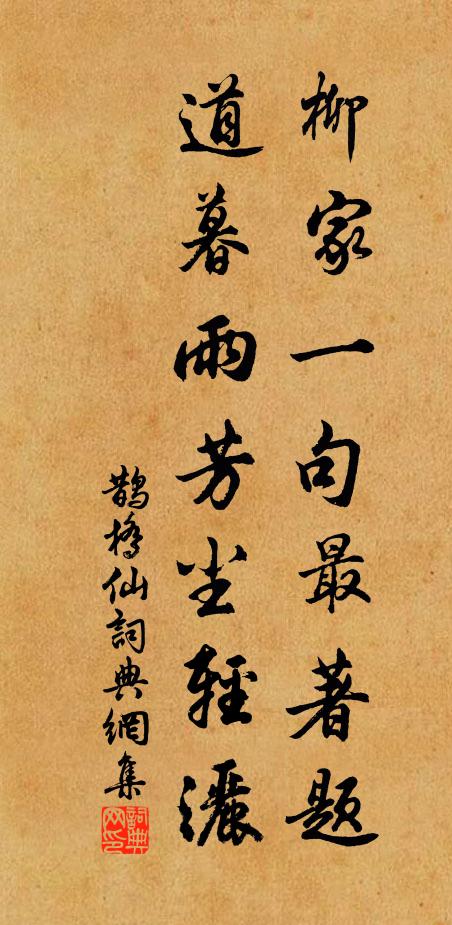 柳家一句最著題
道暮雨芳尘輕灑
鵲橋仙詞典網集
詞典網印